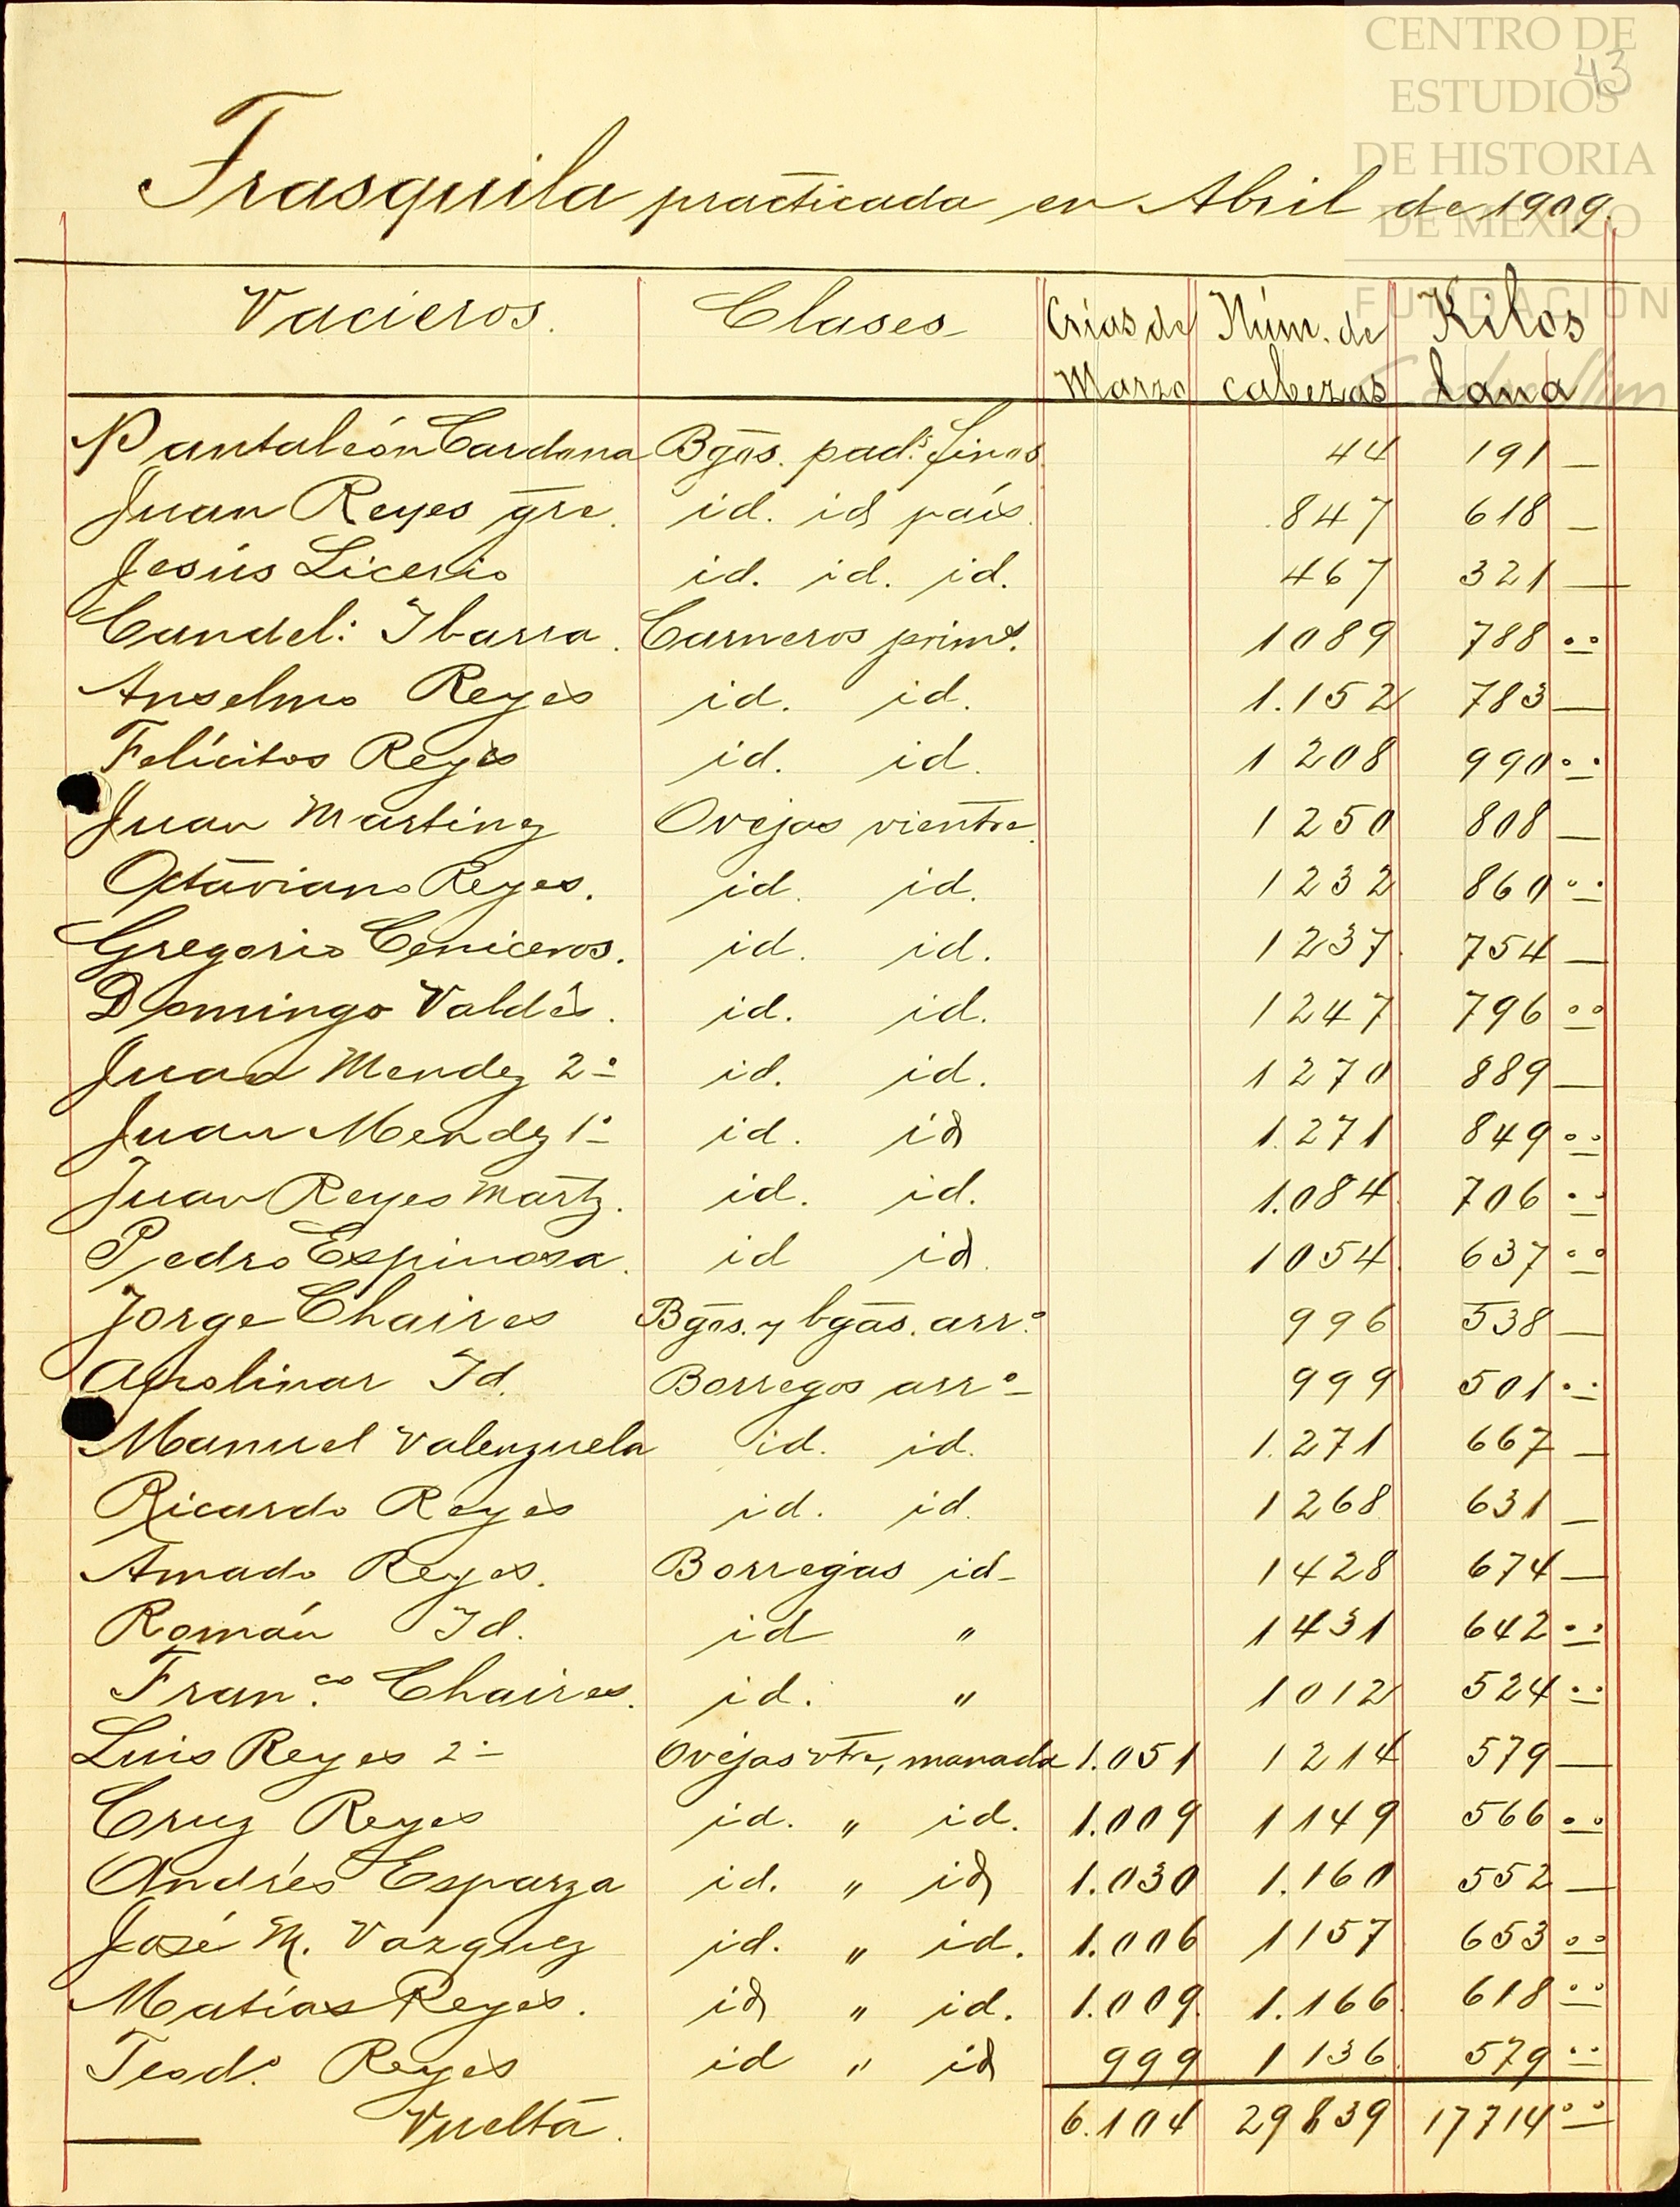 CENTRO DE
ESTUDIOS
DE HISTORIA
DE MÉXICO
FUNDACIÓN
43
Trasquila practicada en Abril de 1909.
Vacieros. Clases Crías de Marzo Núm. de cabezas Kilos lana
Pantaleón Cardona Bgos. pad.s finos 44 191 —
Juan Reyes gre. id. id país. 847 618 —
Jesús Licerio id. id. id. 467 321 —
Candel: Ibarra. Carneros prims. 1089 788 ..
Anselmo Reyes id. id. 1.152 783 —
Felícitos Reyes id. id. 1208 990 ..
Juan Martinez Ovejas vientre. 1250 808 —
Octaviano Reyes. id. id. 1232 860 ..
Gregorio Ceniceros. id. id. 1237. 754 —
Domingo Valdés. id. id. 1247 796 ..
Juan Mendez 2º id. id. 1270 889 —
Juan Mendez 1º id. id 1.271 849 ..
Juan Reyes Martz. id. id. 1.084. 706 ..
Pedro Espinosa. id id. 1054. 637 ..
Jorge Chaires Bgos. y bgas. arrº 996 538 —
Apolinar Id. Borregos arrº 999 501 ..
Manuel Valenzuela id. id. 1.271 667 —
Ricardo Reyes id. id. 1268 631 —
Amado Reyes. Borregas id- 1428 674 —
Román Id. id " 1431 642 ..
Fran.co Chaires. id. " 1012 524 ..
Luis Reyes 2º Ovejas vtre, manada 1.051 1214 579 —
Cruz Reyes id. " id. 1.009 1149 566 ..
Andrés Esparza id. " id 1.030 1.160 552 —
José M. Vazquez id. " id. 1.006 1157 653 ..
Matías Reyes. id " id. 1.009. 1.166. 618 ..
Teodº Reyes id " id 999 1136. 579 ..
Vuelta. 6.104 29839 17714 ..